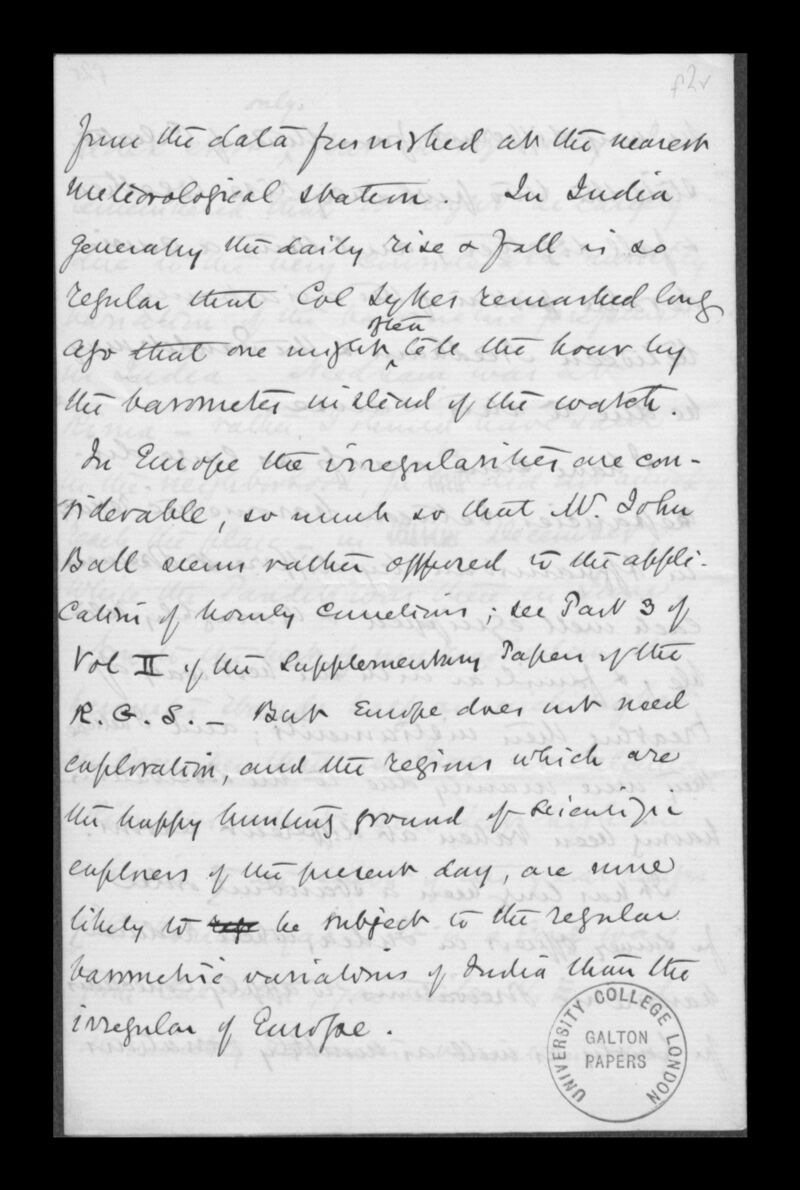 f2v
from the data furnished at the nearest
meteorological station. In India
generally the daily rise & fall is so
regular that Col Sykes remarked long
often
ago that one might tell the hour by
the barometer instead of the watch.
In Europe the irregularities are con-
siderable, so much so that Mr. John
Ball seems rather opposed to the appli-
cation of hourly corrections; see Part 3 of
Vol II of the Supplementary Papers of the
R.G.S. – But Europe does not need
exploration, and the regions which are
the happy hunting ground of scientific
explorers of the present day, are more
likely to be subject to the regular
barometric variations of India than the
irregular of Europe.
UNIVERSITY COLLEGE LONDON
GALTON
PAPERS